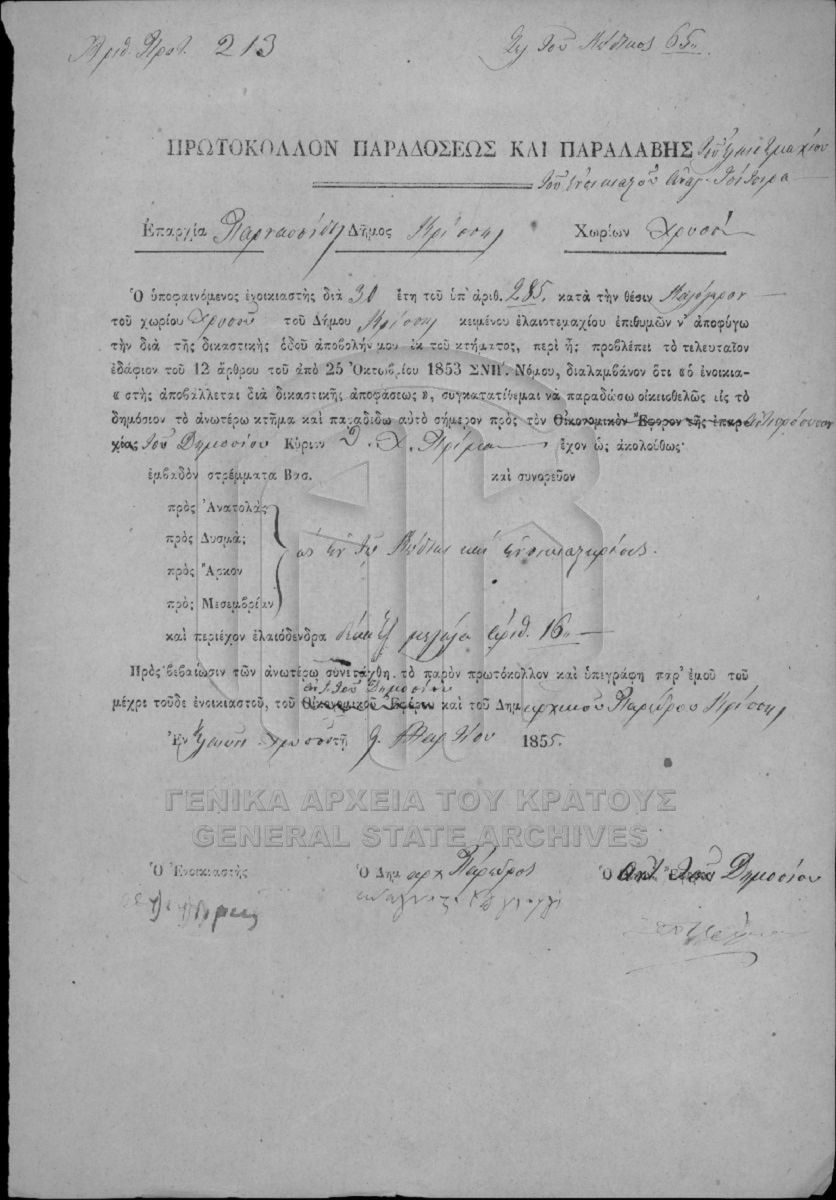 Ἀριθ. Πρωτ. 213
τοῦ Κώδικος 65
ΠΡΩΤΟΚΟΛΛΟΝ ΠΑΡΑΔΟΣΕΩΣ ΚΑΙ ΠΑΡΑΛΑΒΗΣ
τοῦ ἐνοικιαστοῦ
Ἐπαρχία Παρνασσίδος Δῆμος Κρίσσης Χωρίον Χρυσοῦ
Ὁ ὑποφαινόμενος ἐνοικιαστὴς διὰ 30 ἔτη τοῦ ὑπ' ἀριθ. 285. κατὰ τὴν θέσιν
τοῦ χωρίου Χρυσοῦ τοῦ Δήμου Κρίσσης κειμένου ἐλαιοτεμαχίου ἐπιθυμῶν ν' ἀποφύγω
τὴν διὰ τῆς δικαστικῆς ὁδοῦ ἀποβολήν μου ἐκ τοῦ κτήματος, περὶ ἧς προβλέπει τὸ τελευταῖον
ἐδάφιον τοῦ 12 ἄρθρου τοῦ ἀπὸ 25 Ὀκτωβρίου 1853 ΣΝΠ'. Νόμου, διαλαμβάνον ὅτι «ὁ ἐνοικια-
«στὴς ἀποβάλλεται διὰ δικαστικῆς ἀποφάσεως», συγκατατίθεμαι νὰ παραδώσω οἰκειοθελῶς εἰς τὸ
δημόσιον τὸ ἀνωτέρω κτῆμα καὶ παραδίδω αὐτὸ σήμερον πρὸς τὸν Οἰκονομικὸν Ἔφορον τῆς ἐπαρ ἀντιπρόσωπον
χίας τοῦ Δημοσίου Κύριον ἔχον ὡς ἀκολούθως·
ἐμβαδὸν στρέμματα Βασ. καὶ συνορεῦον
πρὸς Ἀνατολὰς
πρὸς Δυσμὰς
ὡς ἐν τῷ Κώδικι καὶ
πρὸς Ἄρκον
πρὸς Μεσεμβρίαν
καὶ περιέχον ἐλαιόδενδρα δέκα ἓξ μεγάλα ἀριθ. 16
Πρὸς βεβαίωσιν τῶν ἀνωτέρω συνετάχθη τὸ παρὸν πρωτόκολλον καὶ ὑπεγράφη παρ' ἐμοῦ τοῦ
ἀντ. τοῦ Δημοσίου
μέχρι τοῦδε ἐνοικιαστοῦ, τοῦ Οἰκονομικοῦ Ἐφόρου καὶ τοῦ Δημαρχικοῦ Παρέδρου Κρίσσης
Ἐν Χρυσοῦ τῇ 9 Μαρτίου 1855.
ΓΕΝΙΚΑ ΑΡΧΕΙΑ ΤΟΥ ΚΡΑΤΟΥΣ
GENERAL STATE ARCHIVES
Ὁ Ἐνοικιαστής Ὁ Δημαρχ Πάρεδρος Ὁ ἀντ. τοῦ Δημοσίου